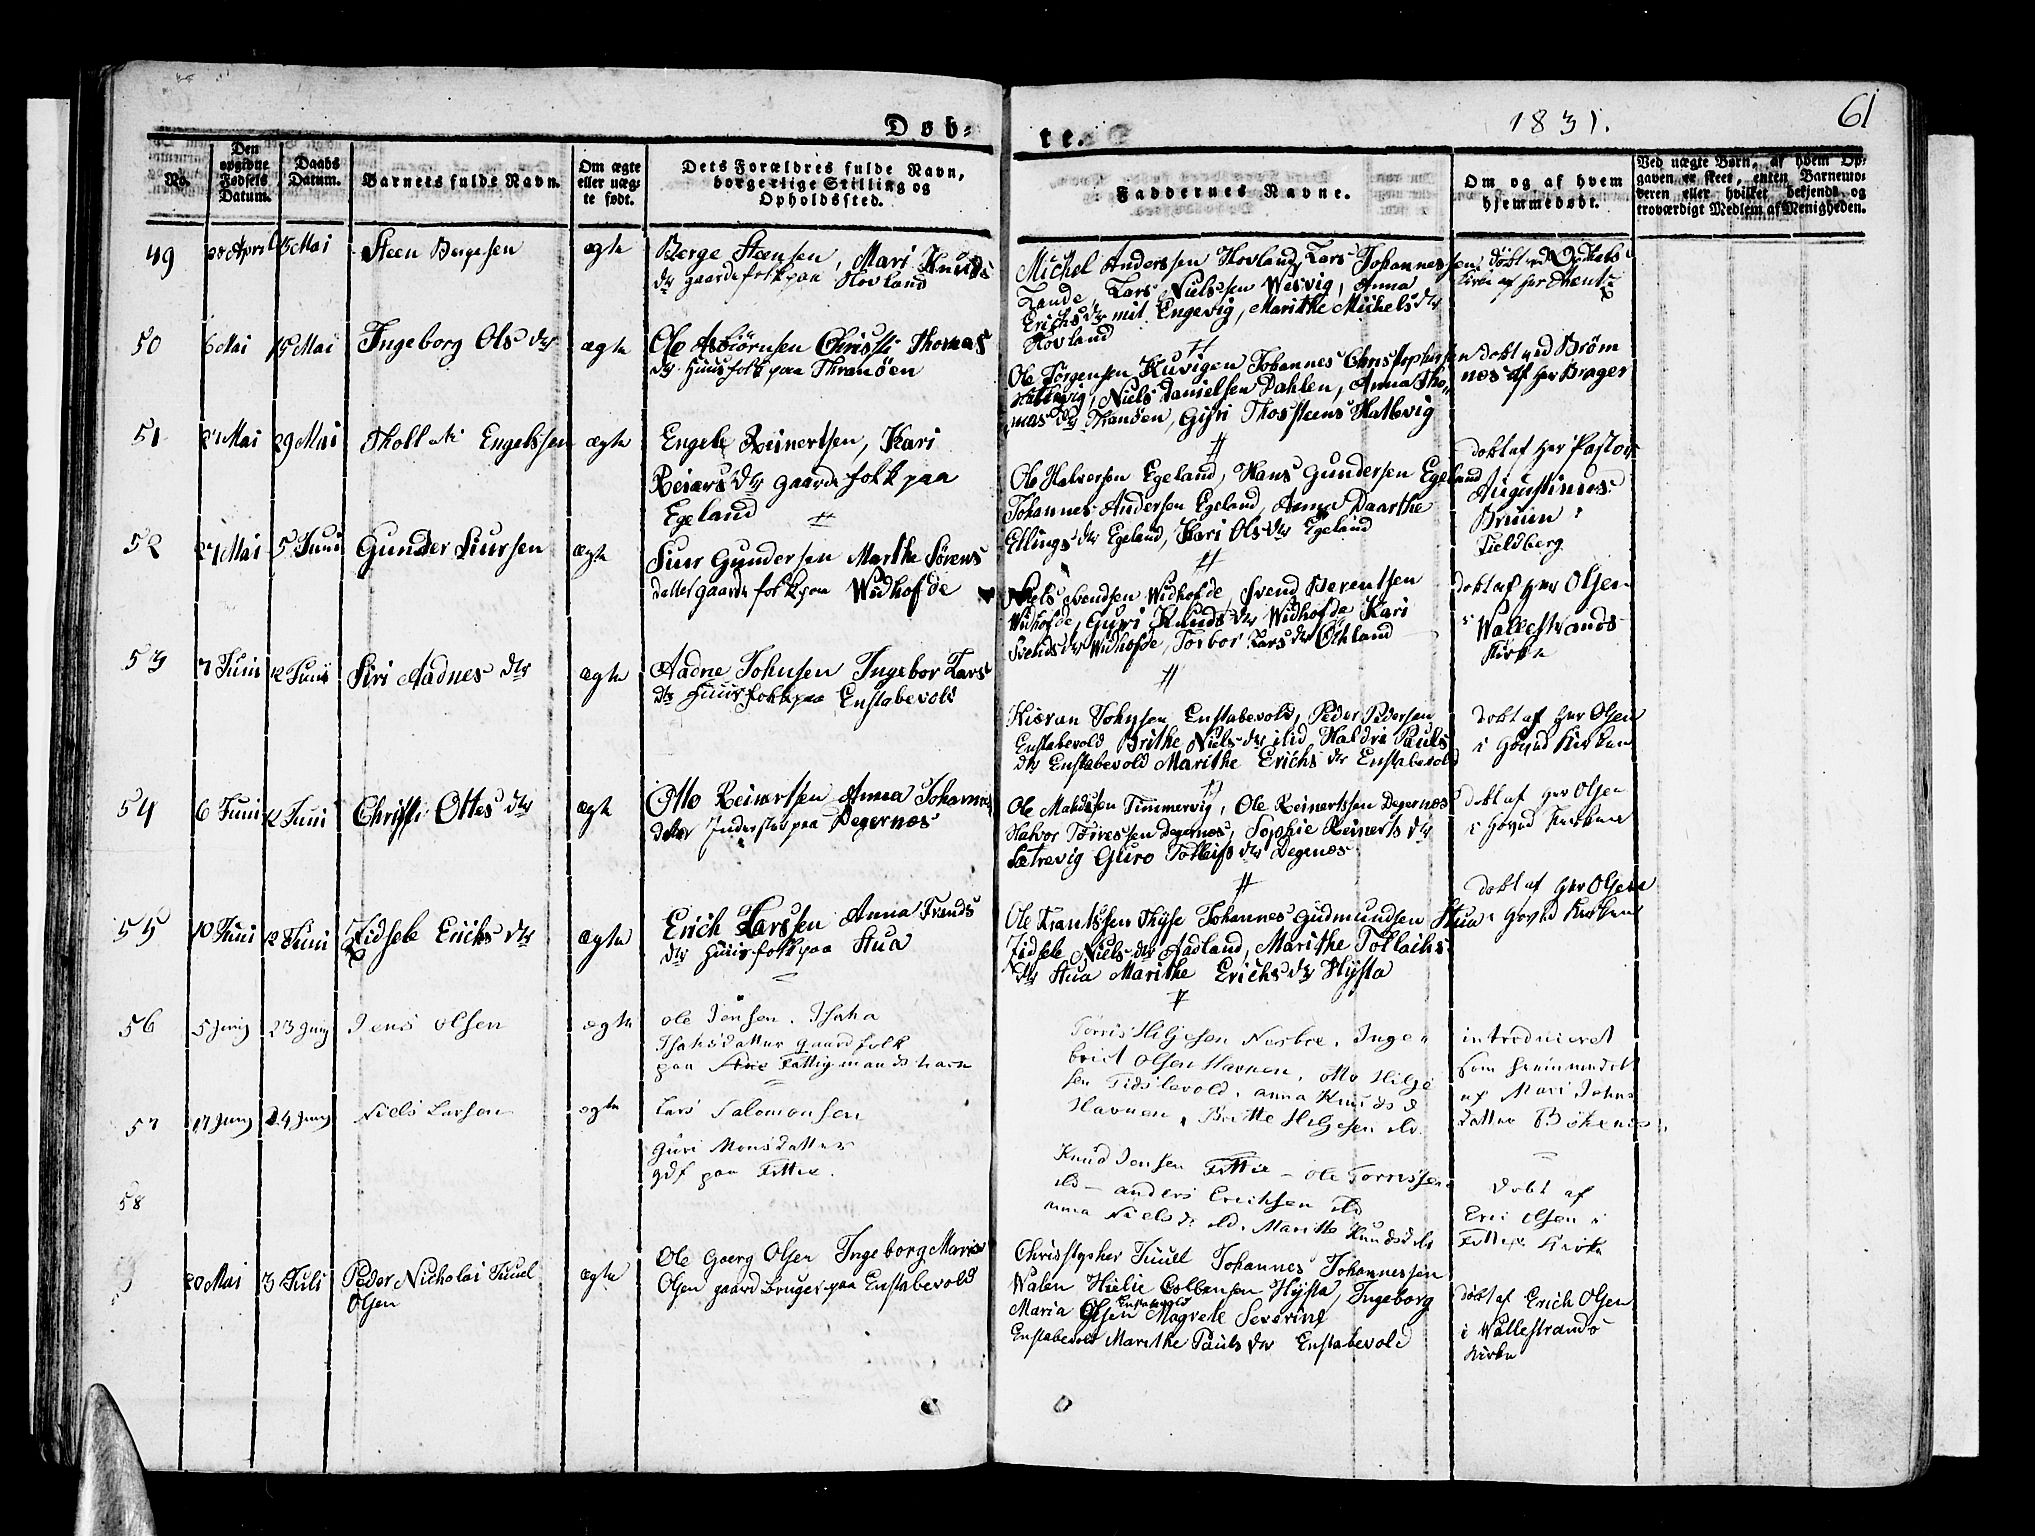 Døb-
te.
1831.
61
No.
Den
opgivne
Fødsels
Datum.
Daabs
Datum.
Barnets fulde Navn.
Om ægte
eller uæg-
te født.
Dets Forældres fulde Navn,
borgerlige Stilling og
Opholdssted.
Faddernes Navne.
Om og af hvem
hjemmedøbt.
Ved uægte Børn, af hvem Op-
gaven er skeet, enten Barnemo-
deren eller hvilket bekjendt og
troværdigt Medlem af Menigheden.
49
April
Mai
Steen Bergesen
ægte
Berge Steensen, Mari Knuds
dtr gaardefolk paa Hovland
Michel Anderssen Hovland, Lars Johannessen
Lande, Lars Nielssen Wesvig, Anna
Erichs dtr mit Engevig, Marithe Michels dtr
Hovland
døbt ved
Kirke af Her
50
6 Mai
15 Mai
Ingeborg Ols dtr
ægte
Ole Asbiørnsen Christi Thomas
dtr Huusfolk paa Thranøen
Ole Jørgensen Kuvigen Johannes Christophersen
Hattevig, Niels Danielsen Dahlen, Anna Tho-
mas dtr Thranøen, Gyri Thossteens Hattevig
døbt ved Brøm
nes af Her Brager
51
Mai
29 Mai
Engelssen
ægte
Engele Reinertsen, Kari
Reiners dtr gaardefolk paa
Egeland
Ole Halversen Egeland, Hans Gundersen Egeland
Johannes Andersen Egeland, Anna Daarthe
Ellings dtr Egeland, Kari Ols dtr Egeland
døbt af Her Pastor
Augustinus
Bruun i
Fieldberg
52
Mai
5 Juni
Gunder Siursen
ægte
Siur Gundersen Marthe Sørens
datter gaardefolk paa Widhofde
Niels Svendsen Widhofde, Svend Berentsen
Widhofde, Guri Knuds dtr Widhofde Kari
Svends dtr Widhofde, Torbor Lars dtr Økland
døbt af Her Olsen
i Wallestrands
Kirke
53
7 Juni
12 Juni
Siri Aadnes dtr
ægte
Aadne Johnsen Ingebor Lars
dtr Huusfolk paa Enstabevold
Johnsen Enstabevold, Peder Pedersen
Enstabevold Brithe Niels dtr ibid Haldri Pauls
dtr Enstabevold Marithe Erichs dtr Enstabevold
døbt af Her Olsen
i Hoved Kirken
54
6 Juni
12 Juni
Christi Ottes dtr
ægte
Otto Reinertsen Anna Johannes
datter Inderster paa Degernæs
Ole Madssen Timmervig, Ole Reinertssen Degernæs
Halvor Tørressen Degernæs, Sophie Reinerts dtr
Sætrevig Guro Tolleifs dtr Degenæs
døbt af Her Olsen
i Hoved Kirken
55
10 Juni
12 Juni
Zidsele Erichs dtr
ægte
Erich Larssen Anna Frends
dtr Huusfolk paa Stua
Ole Frantssen Thyse Johannes Gudmundsen Stua
Zidsele Niels dtr Aadland, Marithe Tollachs
dtr Stua Marithe Erichs dtr Hysta
døbt af Her Olsen
i Hoved Kirken
56
5 Juny
23 Juny
Jens Olsen
ægte
Ole Jensen. Thaha
datter gaardfolk
paa Fattigmands
Tørris Hilgesen Nesboe. Inge-
brict Olsen Havnen. Otto Hilge
sen Tidslevold. anna Knuds d
Havnen. Britte Hilgesen
introduceret
som hiemmedøbt
af Mari Johns
datter Bökenes
57
17 Juny
24 Juny
Niels Larsen
ægte
Lars Salomonsen
Guri Monsdatter
gdf paa Fittie.
Knud Jensen Fittie - Ole Tørrissen
ib - anders Erichsen ibd
anna Niels d ibd. Maritte Knudsd ib
Døbt af
Eric Olsen i
Fittie Kirke
58
20 Mai
3 Juli
Peder Nicholai Juuel
Olsen
ægte
Ole Goerg Olsen Ingeborg Maria
Olsen gaard bruger paa Enstabevold
Christopher Juuel Johannes Johannessen
Walen Hielie Colbensen Hysta, Ingeborg
Maria Olsen Enstabevold Magrete Severine
Enstabevold Marithe Pauls dtr Enstabevold
døbt af Erich Olsen
i Wallestrands
Kirke